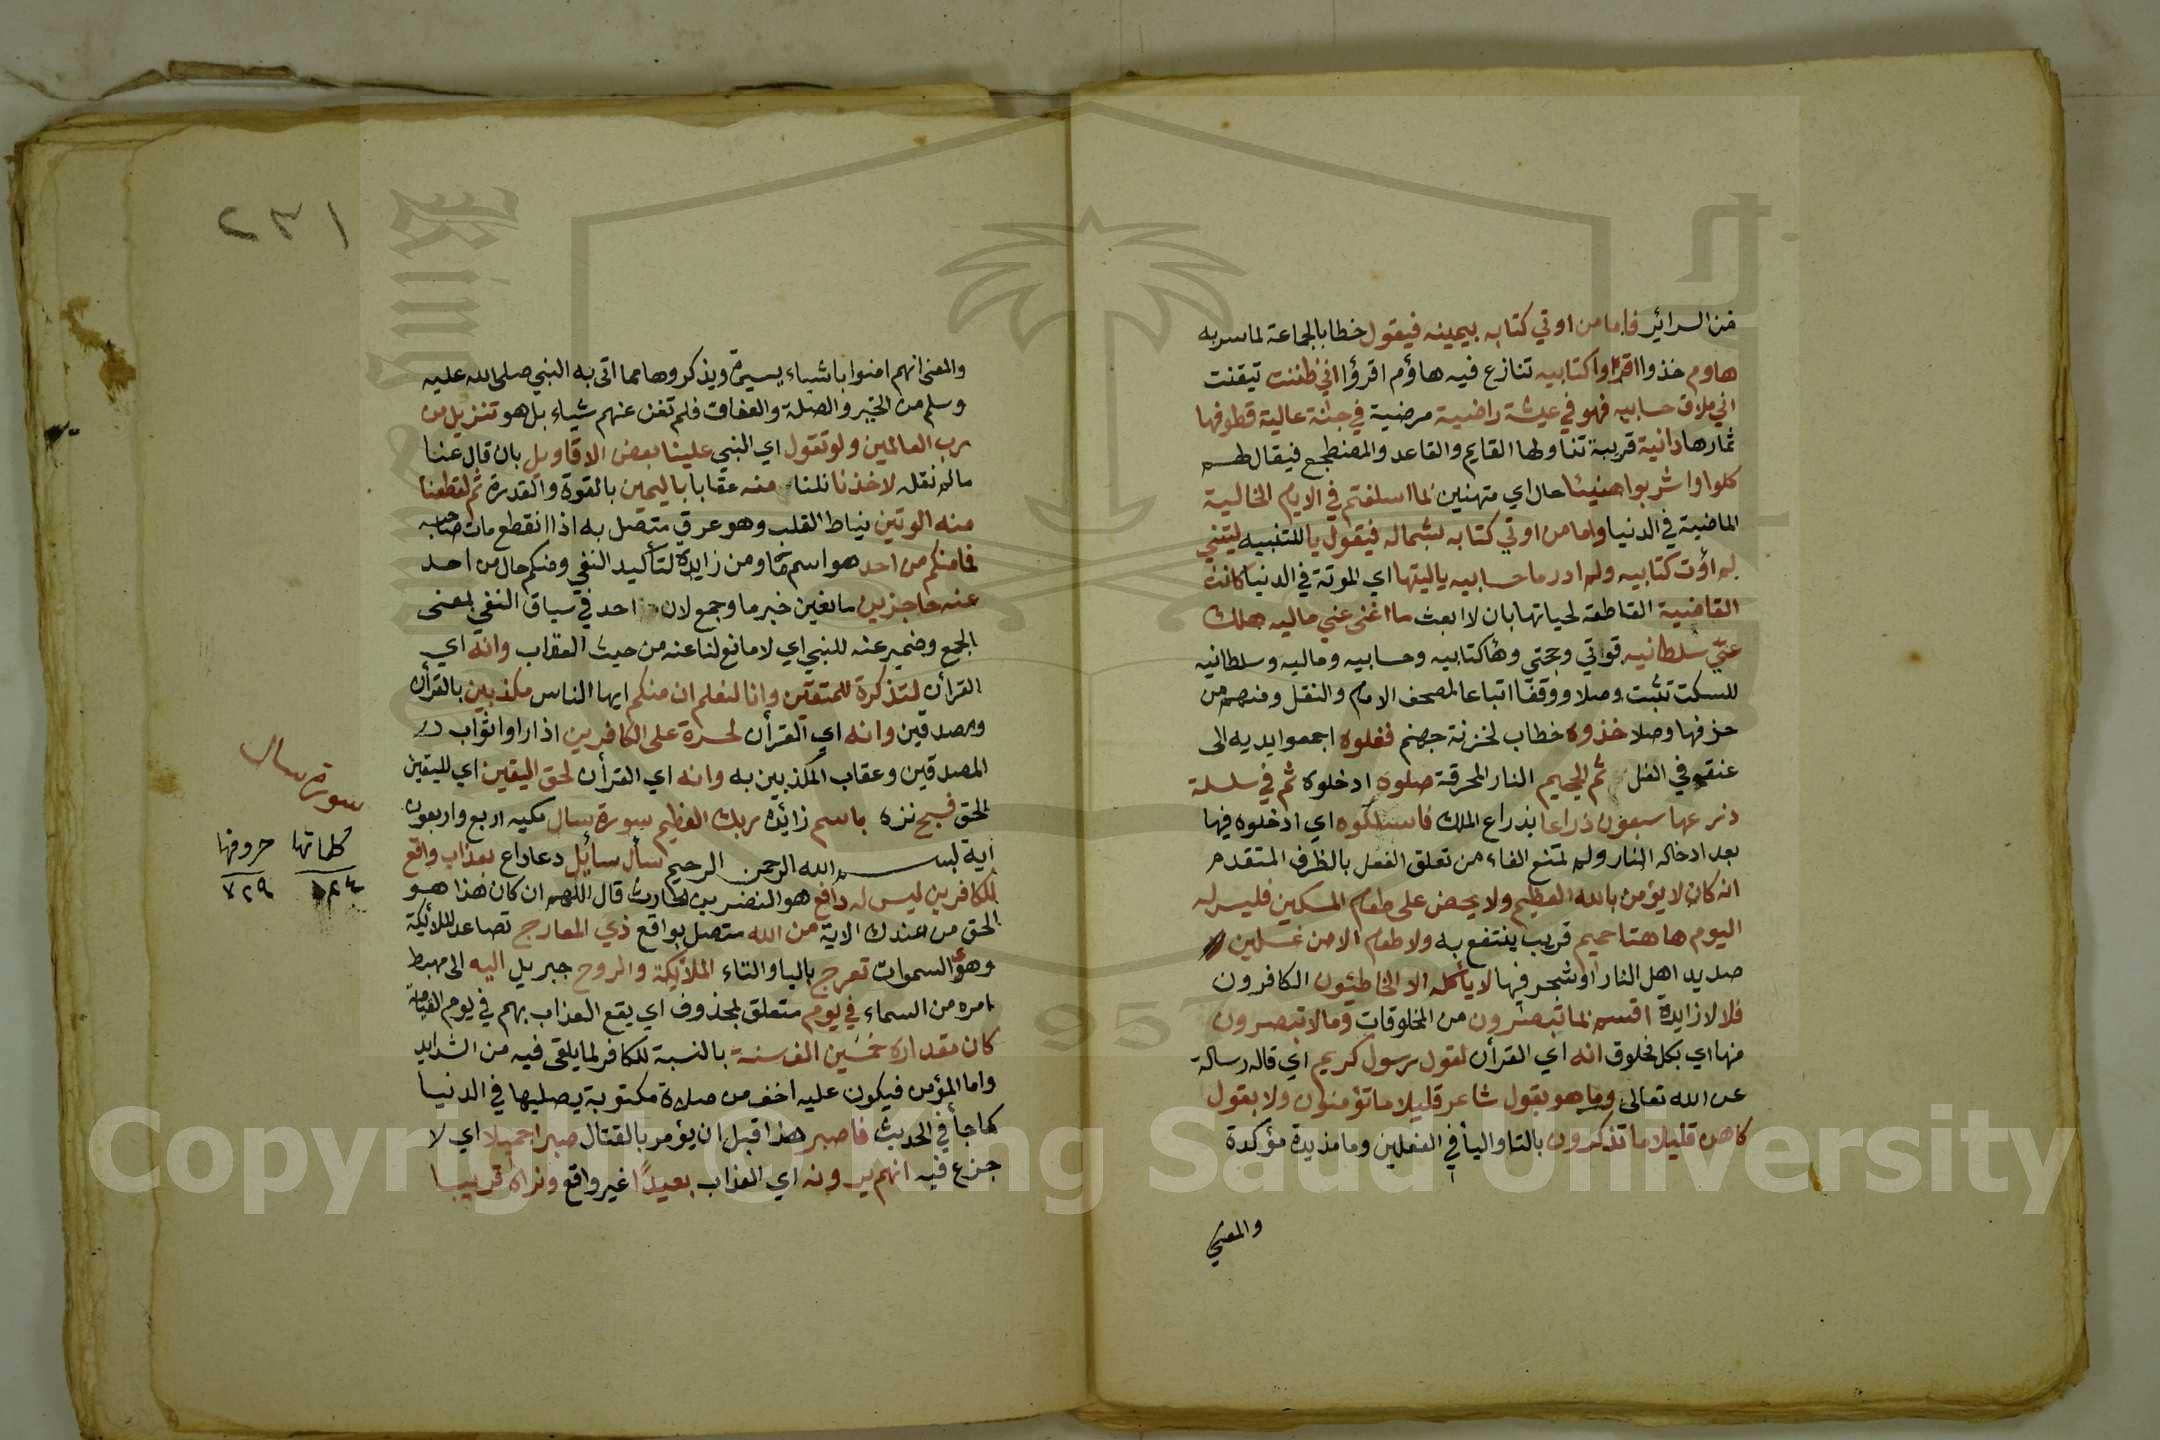 من السرائر فاما من اوتي كتابه بيمينه فيقول خطابا لجماعة لما سر به
هاوم خذوا اقرؤا كتابيه تنازع فيه هاؤم اقرؤا اني ظننت تيقنت
اني ملاق حسابيه فهو في عيشة راضية مرضية في جنة عالية قطوفها
ثمارها دانية قريبة تناولها القايم والقاعد والمضطجع فيقال لهم
كلوا واشربوا هنيئا حال اي متهنين بما اسلفتم في الايام الخالية
الماضية في الدنيا واما من اوتي كتابه بشماله فيقول يا للتنبيه ليتني
لم اؤت كتابيه ولم ادر ما حسابيه ياليتها اي الموتة في الدنيا كانت
القاضية القاطعة لحياتها بان لا ابعث ما اغنى عني ماليه هلك
عني سلطانيه قوتي وحجتي وها كتابيه وحسابيه وماليه وسلطانيه
للسكت تثبت وصلا ووقفا اتباعا لمصحف الامام والنقل ومنهم من
حذفها وصلا خذوه خطاب لخزنة جهنم فغلوه اجمعوا يديه الى
عنقه في الغل ثم الجحيم النار المحرقة صلوه ادخلوه ثم في سلسلة
ذرعها سبعون ذراعا بذراع الملك فاسلكوه اي ادخلوه فيها
بعد ادخاله النار ولم تمنع الفاء من تعلق الفعل بالظرف المتقدم
انه كان لا يؤمن بالله العظيم ولا يحض على طعام المسكين فليس له
اليوم هاهنا حميم قريب ينتفع به ولا طعام الا من غسلين
صديد اهل النار او شجر فيها لا يأكله الا الخاطئون الكافرون
فلا لا زايدة اقسم بما تبصرون من المخلوقات وما لا تبصرون
منها اي بكل مخلوق انه اي القرأن لقول رسول كريم اي قاله رسالة
عن الله تعالى وما هو بقول شاعر قليلا ما تؤمنون ولا بقول
كاهن قليلا ما تذكرون بالتا واليأ في الفعلين وما مزيدة مؤكدة
والمعنى
٢٣١
والمعنى انهم امنوا باشياء يسيرة ويذكروها مما اتى به النبي صلى الله عليه
وسلم من الخير والصلة والعفاف فلم تغن عنهم شياء بل هو تنزيل من
رب العالمين ولو تقول اي النبي علينا بعض الاقاويل بان قال عنا
ما لم نقله لاخذنا نلنا منه عقابا باليمين بالقوة والقدرة ثم لقطعنا
منه الوتين نياط القلب وهو عرق متصل به اذا انقطع مات صاحبه
فما منكم من احد هو اسم ما ومن زايدة لتأكيد النفي ومنكم حال من احد
عنه حاجزين مانعين خبر ما وجمع لان احد في سياق النفي بمعنى
الجمع وضمير عنه للنبي اي لا مانع لنا عنه من حيث العقاب وانه اي
القرأن لتذكرة للمتقين وانا لنعلم ان منكم ايها الناس مكذبين بالقرأن
ومصدقين وانه اي القرأن لحسرة على الكافرين اذا راوا ثواب
المصدقين وعقاب المكذبين به وانه اي القرأن لحق اليقين اي لليقين
الحق فسبح نزه باسم زائدة ربك العظيم سورة سال مكيه اربع واربعون
اية بسم الله الرحمن الرحيم سأل سائل دعا داع بعذاب واقع
للكافرين ليس له دافع هو النضر بن الحارث قال اللهم ان كان هذا هو
الحق من عندك الاية من الله متصل بواقع ذي المعارج تصاعد للملائكة
وهو السموات تعرج باليا والتاء الملائكة والروح جبريل اليه الى مهبط
امره من السماء في يوم متعلق بمحذوف اي يقع العذاب بهم في يوم القيامة
كان مقداره خمسين الف سنة بالنسبة للكافر لما يلقى فيه من الشدايد
واما المؤمن فيكون عليه اخف من صلاة مكتوبة يصليها في الدنيا
كما جأ في الحديث فاصبر هذا قبل ان يؤمر بالقتال صبرا جميلا اي لا
جزع فيه انهم يرونه اي العذاب بعيدًا غير واقع ونراه قريبا
سورة سال
كلماتها حروفها
٧٢٩
Copyright © King Saud University
King Saud
957